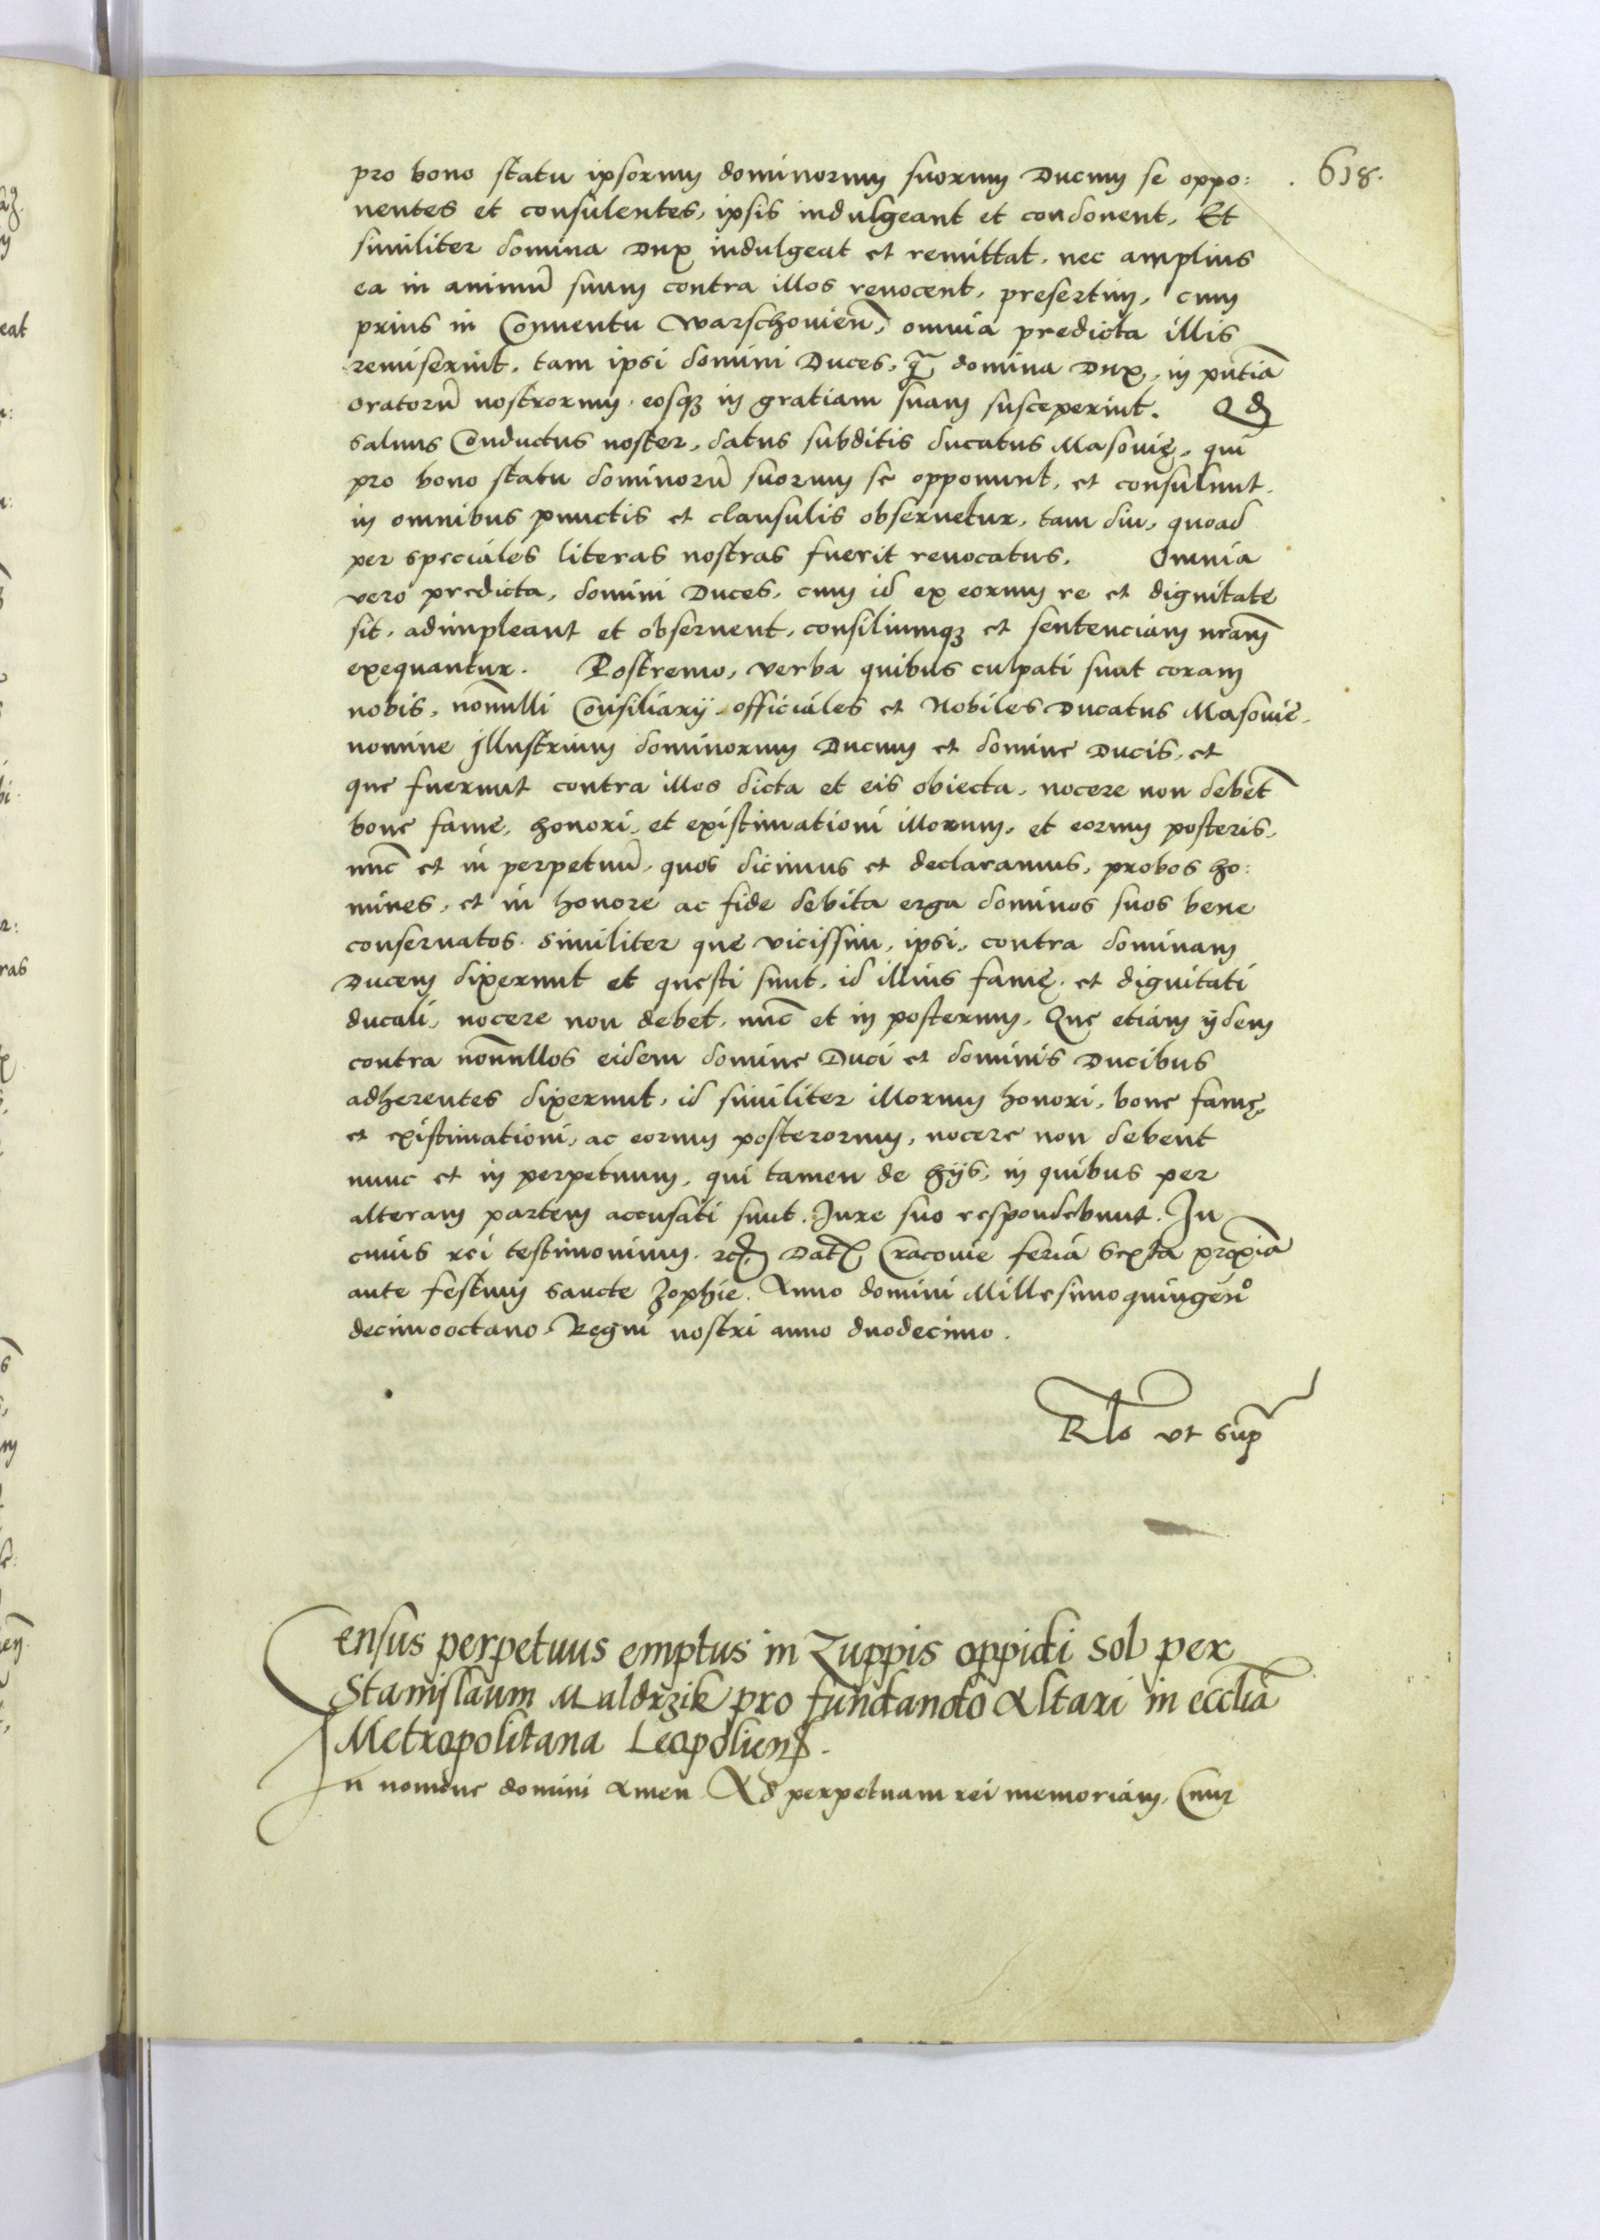 . 618.
pro bono statu ipsorum dominorum suorum Ducum se oppo:
nentes et consulentes, ipsis indulgeant et condonent, Et
similiter domina Dux indulgeat et remittat, nec amplius
ea in animū suum contra illos reuocent, presertim, cum
prius in Conuentu Warschouieñ, omnia predicta illis
remiserint, tam ipsi domini Duces, q̃ domina Dux, in pñtia
oratorū nostrorum eosqꝫ in gratiam suam susceperint. Qd
saluus Conductus noster, datus subditis ducatus Masouię, qui
pro bono statu dominorū suorum se opponunt, et consulunt,
in omnibus punctis et clausulis obseruetur, tam diu, quoad
per speciales literas nostras fuerit reuocatus. Omnia
vero predicta, domini Duces, cum id ex eorum re et dignitate
sit, adimpleant et obseruent, consiliumqꝫ et sentenciam nr̃am
exequantur. Postremo, verba quibus culpati sunt coram
nobis, nõnulli Consiliarij officiales et Nobiles Ducatus Masouie,
nomine Illustrium dominorum Ducum et domine Ducis, et
que fuerunt contra illos dicta et eis obiecta, nocere non debēt
bone fame, honori, et existimationi illorum, et eorum posteris,
nūc et in perpetuū, quos dicimus et declaramus, probos ho:
mines, et in honore ac fide debita erga dominos suos bene
conseruatos. Similiter que vicissim, ipsi, contra dominam
Ducem dixerunt et questi sunt, id illius famę et dignitati
ducali, nocere non debet, nūc et in posterum, Que etiam ijdem
contra nõnullos eidem domine Duci et dominis Ducibus
adherentes dixerunt, id similiter illorum honori, bone famę,
et existimationi, ac eorum posterorum, nocere non debent
nunc et in perpetuum, qui tamen de hijs, in quibus per
alteram partem accusati sunt. Iure suo respondebunt. In
cuius rei testimonium. rc. Dat Cracouie feria sexta proxia
ante festum sancte Zophie. Anno domini Millesimoquingenᵒ
decimooctauo. Regni nostri anno duodecimo.
Rlo vt supra
Census perpetuus emptus in Zuppis oppidi Sol per
Stanislaum Maldrzik pro fundando Altari in eccl̃ia
Metropolitana Leopolien.
In nomine domini Amen Ad perpetuam rei memoriam, Cum